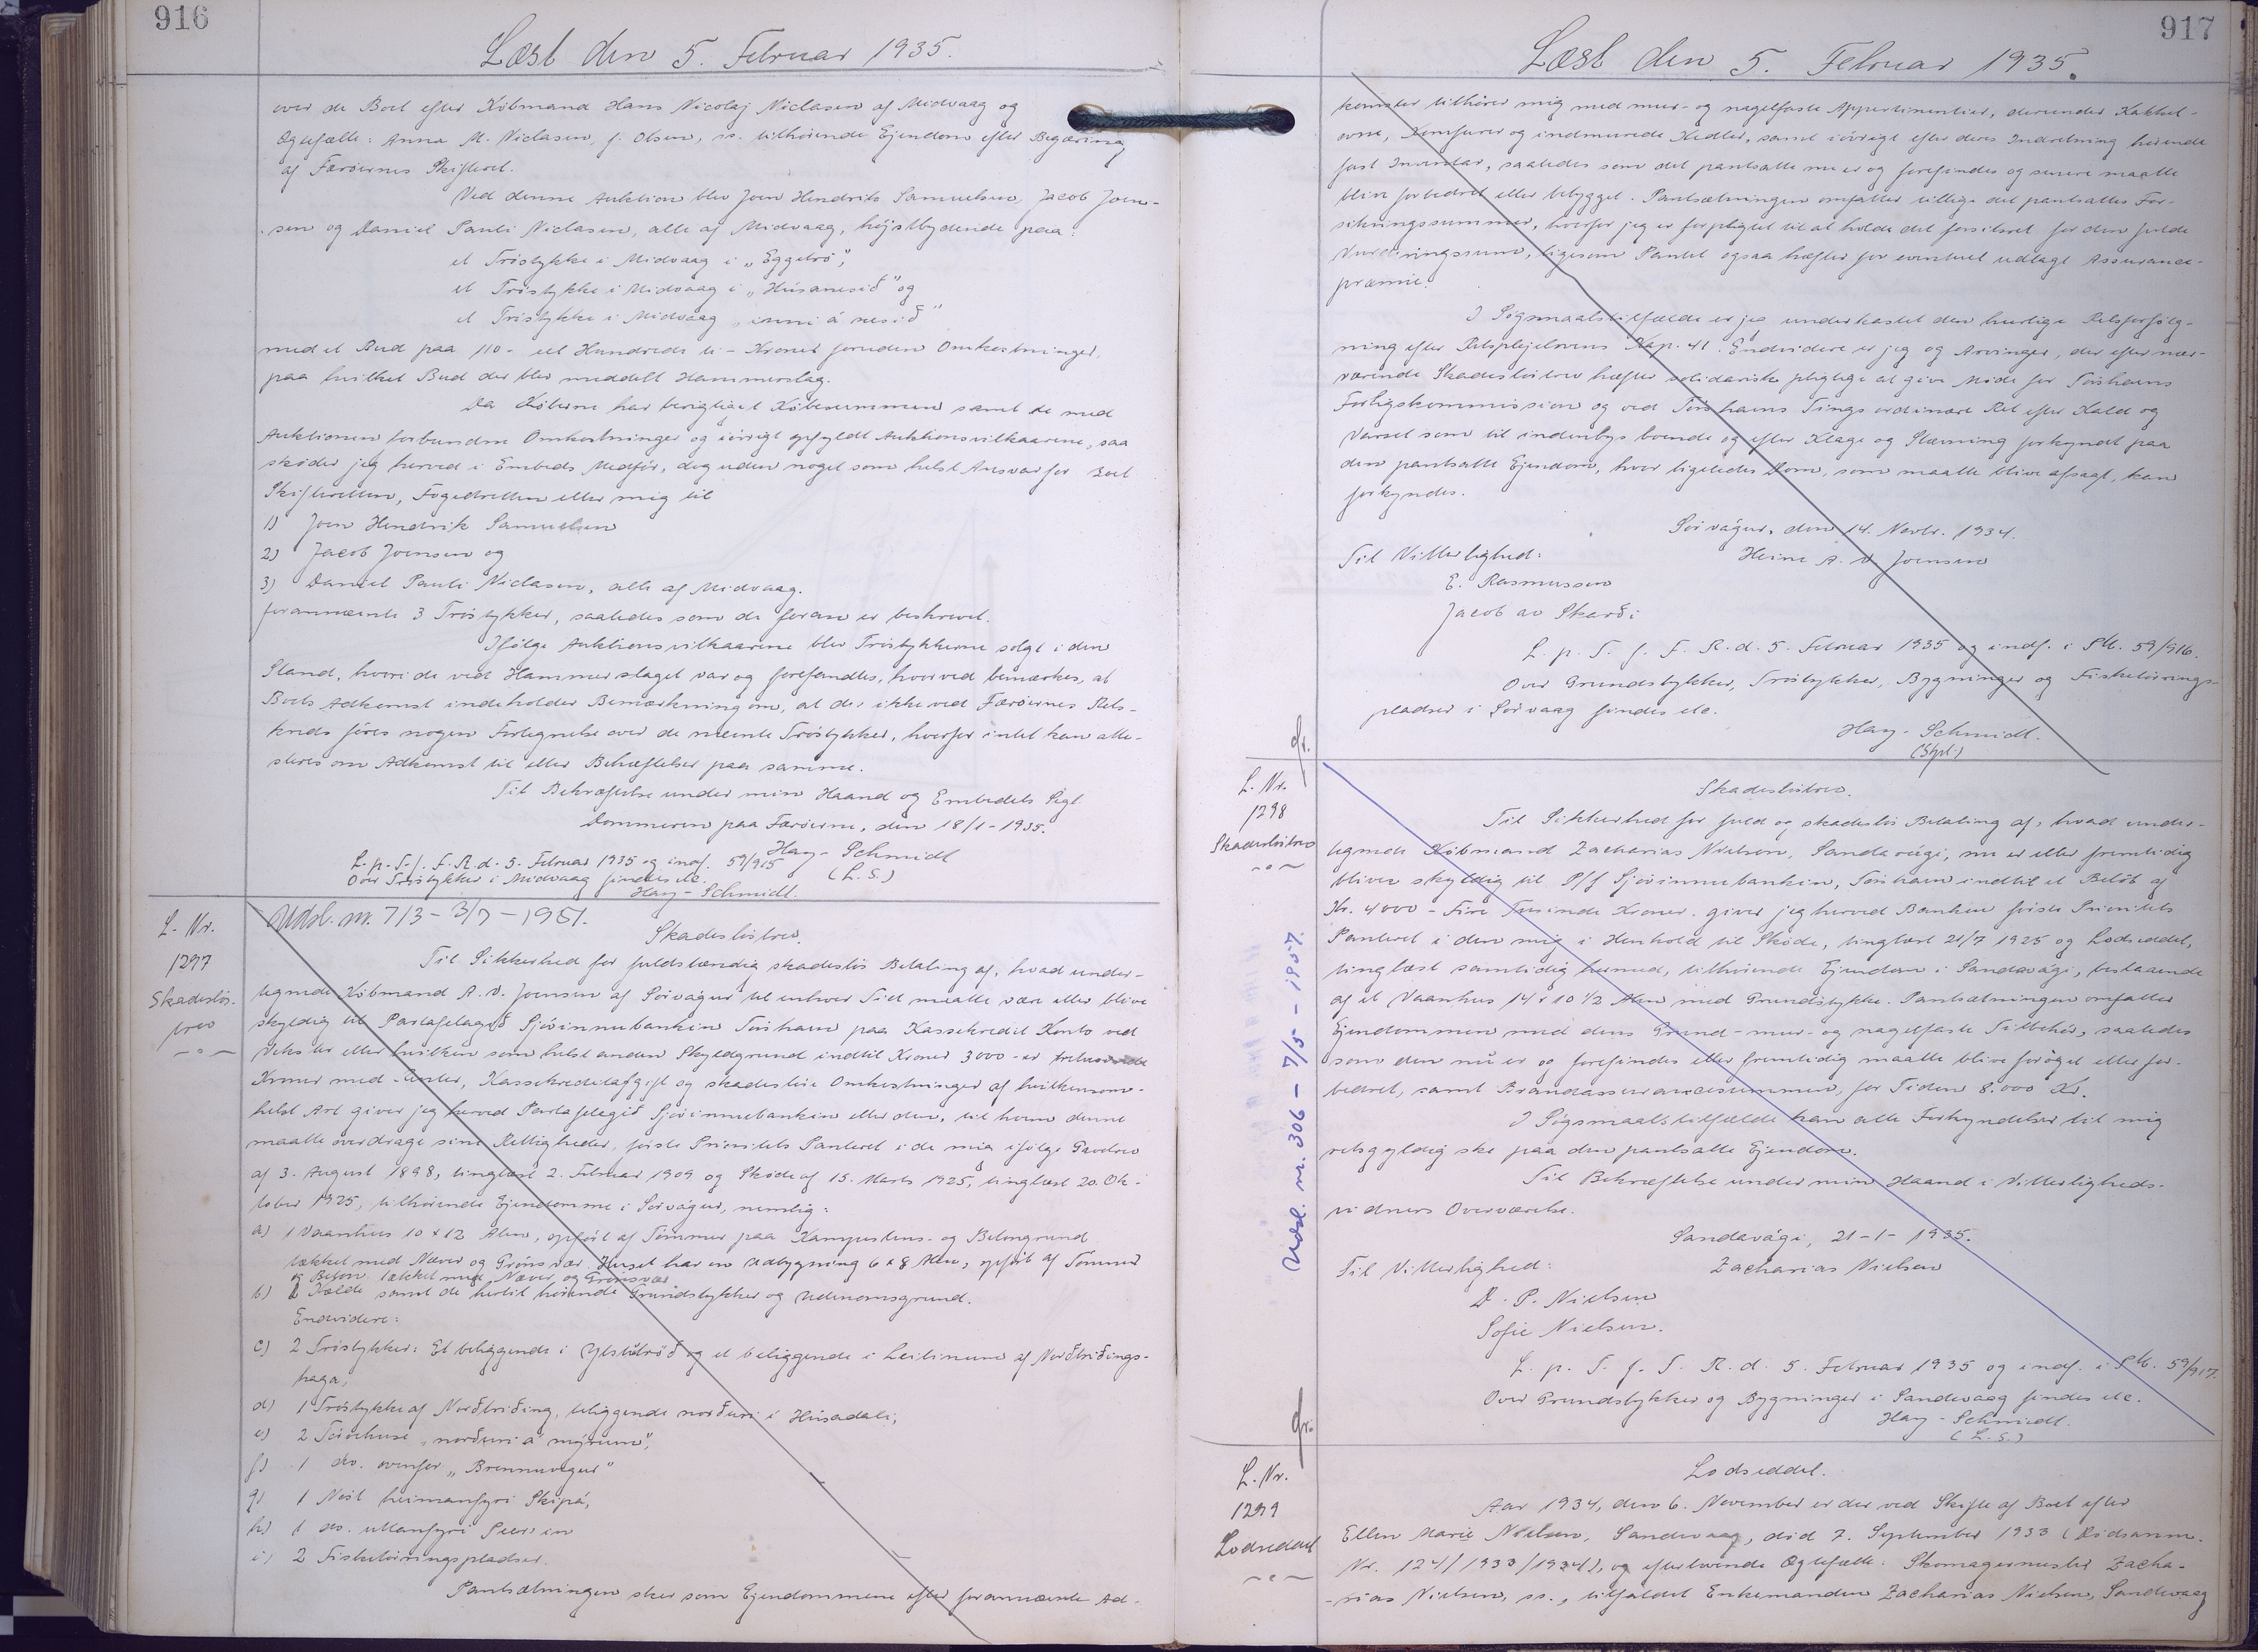 916
Læst den 5. Februar 1935.
over de Boet efter Købmand Hans Nicolaj Niclasen af Midvaag og
Ægtefælle: Anna M. Niclasen, f. Olsen, ss. tilhørende Ejendom efter Begæring
af Færøernes Skifteret.
Ved denne Auktion blev Joen Hendrik Samuelsen, Jacob Joen-
sen og Daniel Pauli Niclasen, alle af Midvaag, højstbydende paa:
et Tróstykke i Midvaag i „Eggetró",
et Tróstykke i Midvaag i „Húsanesið" og
et Tróstykke i Midvaag „inni á nesið"
med et Bud paa 110 - eet Hundrede ti - Kroner foruden Omkostninger,
paa hvilket Bud der blev meddelt Hammerslag.
Da Køberne har berigtiget Købesummen samt de med
Auktionen forbundne Omkostninger og iøvrigt opfyldt Auktionsvilkaarene, saa
skøder jeg herved i Embeds Medfør, dog uden noget som helst Ansvar for Boet
Skifteretten, Fogedretten eller mig til
1) Joen Hendrik Samuelsen
2) Jacob Joensen og
3) Daniel Pauli Niclasen, alle af Midvaag.
forannævnte 3 Tróstykker, saaledes som de foran er beskrevet.
Ifølge Auktionsvilkaarene blev Tróstykkerne solgt i den
Stand, hvori de ved Hammerslaget var og forefandtes, hvorved bemærkes, at
Boets Adkomst indeholder Bemærkning om, at der ikke ved Færøernes Rets-
kreds føres nogen Fortegnelse over de nævnte Tróstykker, hvorfor intet kan atte-
steres om Adkomst til eller Behæftelser paa samme.
Til Bekræftelse under min Haand og Embedets Segl.
Dommeren paa Færøerne, den 18/1-1935.
Hay-Schmidt
(L.S.)
L.p.T.f.F.R.d. 5. Februar 1935 og indf. 59/915
Over Tróstykker i Midvaag findes ele.
Hay-Schmidt.
L. Nr.
1297
Skadesløs-
brev
Udsl. nr. 713 - 3/7 - 1951.
Skadesløsbrev.
Til Sikkerhed for fuldstændig skadesløs Betaling af, hvad under-
tegnede Købmand A. V. Joensen af Sørvágur til enhver Tid maatte være eller blive
skyldig til Partafelagið Sjóvinnubankin Torshavn paa Kassekredit Konto ved
Veksler eller hvilken som helst anden Skyldgrund indtil Kroner 3000 - er tretusinde
Kroner med Renter, Kassekreditafgift og skadesløse Omkostninger af hvilkensom-
helst Art giver jeg herved Partafelagið Sjóvinnubankin eller den, til hvem denne
maatte overdrage sine Rettigheder, første Prioritets Panteret i de mig ifølge Gavebrev
af 3. August 1898, tinglæst 2. Februar 1909 og Skøde af 15. Marts 1925, tinglæst 20. Ok-
tober 1925, tilhørende Ejendomme i Sørvágur, nemlig:
a) 1 Vaanhus 10 x 12 Alen, opført af Tømmer paa Kampestens- og Betongrund
tækket med Næver og Grønsvær. Huset har en Udbygning 6 x 8 Alen, opført af Tømmer
og Beton tækket med Næver og Grønsvær.
b) 1 Kælde samt de hertil hørende Grundstykker og Udenomsgrund.
Endvidere:
c) 2 Tróstykker: Et beliggende i og et beliggende i Leitinum af Norðbýðings-
haga,
d) 1 Tróstykke af Norðbýðing, beliggende norðuri i Húsadali;
e) 2 Tórvhuse „norðuri á mýrum",
f) 1 do. ovenfor „Brennuvegur"
g) 1 Nøst heimanfyri Skipá,
h) 1 do. uttanfyri
i) 2 Fisketørringspladser.
Pantsætningen sker som Ejendommene efter forannævnte Ad-
917
Læst den 5. Februar 1935.
komster tilhører mig med mur- og nagelfaste Appertinentier, derunder Kakkel-
ovne, Komfurer og indmurede Kedler, samt iøvrigt efter deres Indretning hørende
fast Inventar, saaledes som det pantsatte nu er og forefindes og senere maatte
blive forbedret eller bebygget. Pantsætningen omfatter tillige det pantsattes For-
sikringssummer, hvorfor jeg er forpligtet til at holde det forsikret for den fulde
Vurderingssum, ligesom Pantet ogsaa hæfter for eventuel udlagt Assurance-
præmie.
I Søgsmaalstilfælde er jeg underkastet den hurtige Retsforfølg-
ning efter Retsplejelovens Kap. 41. Endvidere er jeg og Arvinger, der efter nær-
værende Skadesløsbrev hæfter solidarisk pligtige at give Møde for Torshavns
Forligskommission og ved Torshavns Tings ordinære Ret efter Kald og
Varsel som til indenbys boende og efter Klage og Stævning forkyndt paa
den pantsatte Ejendom, hvor ligeledes Dom, som maatte blive afsagt, kan
forkyndes.
Sørvágur, den 14. Novbr. 1934.
Til Vitterlighed:
Heine A. V. Joensen
E. Rasmussen
Jacob av Skarði
L. p. T. f. F. R. d. 5. Februar 1935 og indf. i Pb. 59/916.
Over Grundstykker, Tróstykker, Bygninger og Fisketørrings-
pladser i Sørvaag findes ele.
Hay-Schmidt.
(Spl.)
L. Nr.
1298
Skadesløsbrev
Udsl. nr. 306 - 7/5 - 1957.
Skadesløsbrev.
Til Sikkerhed for fuld og skadesløs Betaling af, hvad under-
tegnede Købmand Zacharias Nielsen, Sandavági, nu er eller fremtidig
bliver skyldig til P/f Sjóvinnubankin, Torshavn indtil et Beløb af
Kr. 4000 - Fire Tusinde Kroner. giver jeg herved Banken første Prioritets
Panteret i den mig i Henhold til Skøde, tinglæst 21/7 1925 og Lodseddel,
tinglæst samtidig hermed, tilhørende Ejendom i Sandavági, bestaaende
af et Vaanhus 14 x 10 1/2 Alen med Grundstykke. Pantsætningen omfatter
Ejendommen med dens Grund-mur- og nagelfaste Tilbehør, saaledes
som den nu er og forefindes eller fremtidig maatte blive forøget eller for-
bedret, samt Brandassurancesummen, for Tiden 8.000 Kr.
I Søgsmaalstilfælde kan alle Forkyndelser til mig
retsgyldig ske paa den pantsatte Ejendom.
Til Bekræftelse under min Haand i Vitterligheds-
vidners Overværelse.
Sandavági, 21-1-1935.
Til Vitterlighed:
Zacharias Nielsen
D. P. Nielsen
Sofie Nielsen.
L. p. T. f. F. R. d. 5. Februar 1935 og indf. i Pb. 59/917.
Over Grundstykker og Bygninger i Sandevaag findes ele.
Hay-Schmidt.
(L.S.)
L. Nr.
1299
Lodseddel
Lodseddel.
Aar 1934, den 6. November er der ved Skifte af Boet efter
Ellen Marie Nielsen, Sandevaag, død 7. September 1933 (Dødsanm.
Nr. 124/1933/1934), og efterlevende Ægtefælle: Skomagermester Zacha-
-rias Nielsen, ss., tilfaldet Enkemanden Zacharias Nielsen, Sandevaag